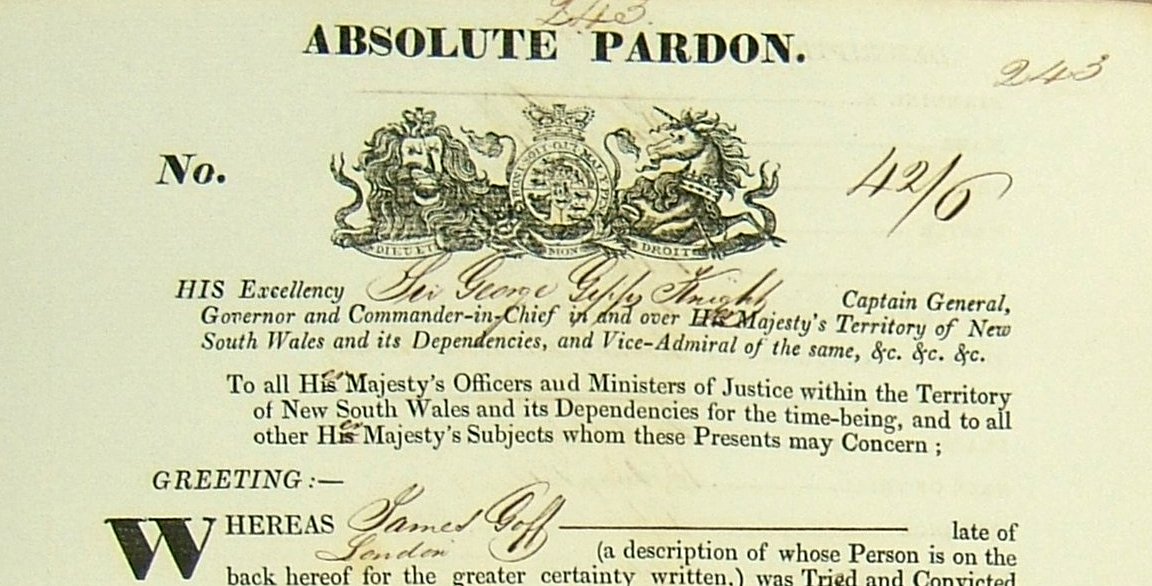 243.
ABSOLUTE PARDON.
243
No.
42/6
HONI SOIT QUI MAL Y PENSE
DIEU ET MON DROIT
HIS Excellency Sir George Gipps Knight Captain General,
Governor and Commander-in-Chief in and over Her Majesty's Territory of New
South Wales and its Dependencies, and Vice-Admiral of the same, &c. &c. &c.
To all Her Majesty's Officers and Ministers of Justice within the Territory
of New South Wales and its Dependencies for the time-being, and to all
other Her Majesty's Subjects whom these Presents may Concern ;
GREETING :—
WHEREAS James Goff late of
London (a description of whose Person is on the
back hereof for the greater certainty written,) was Tried and Convicted